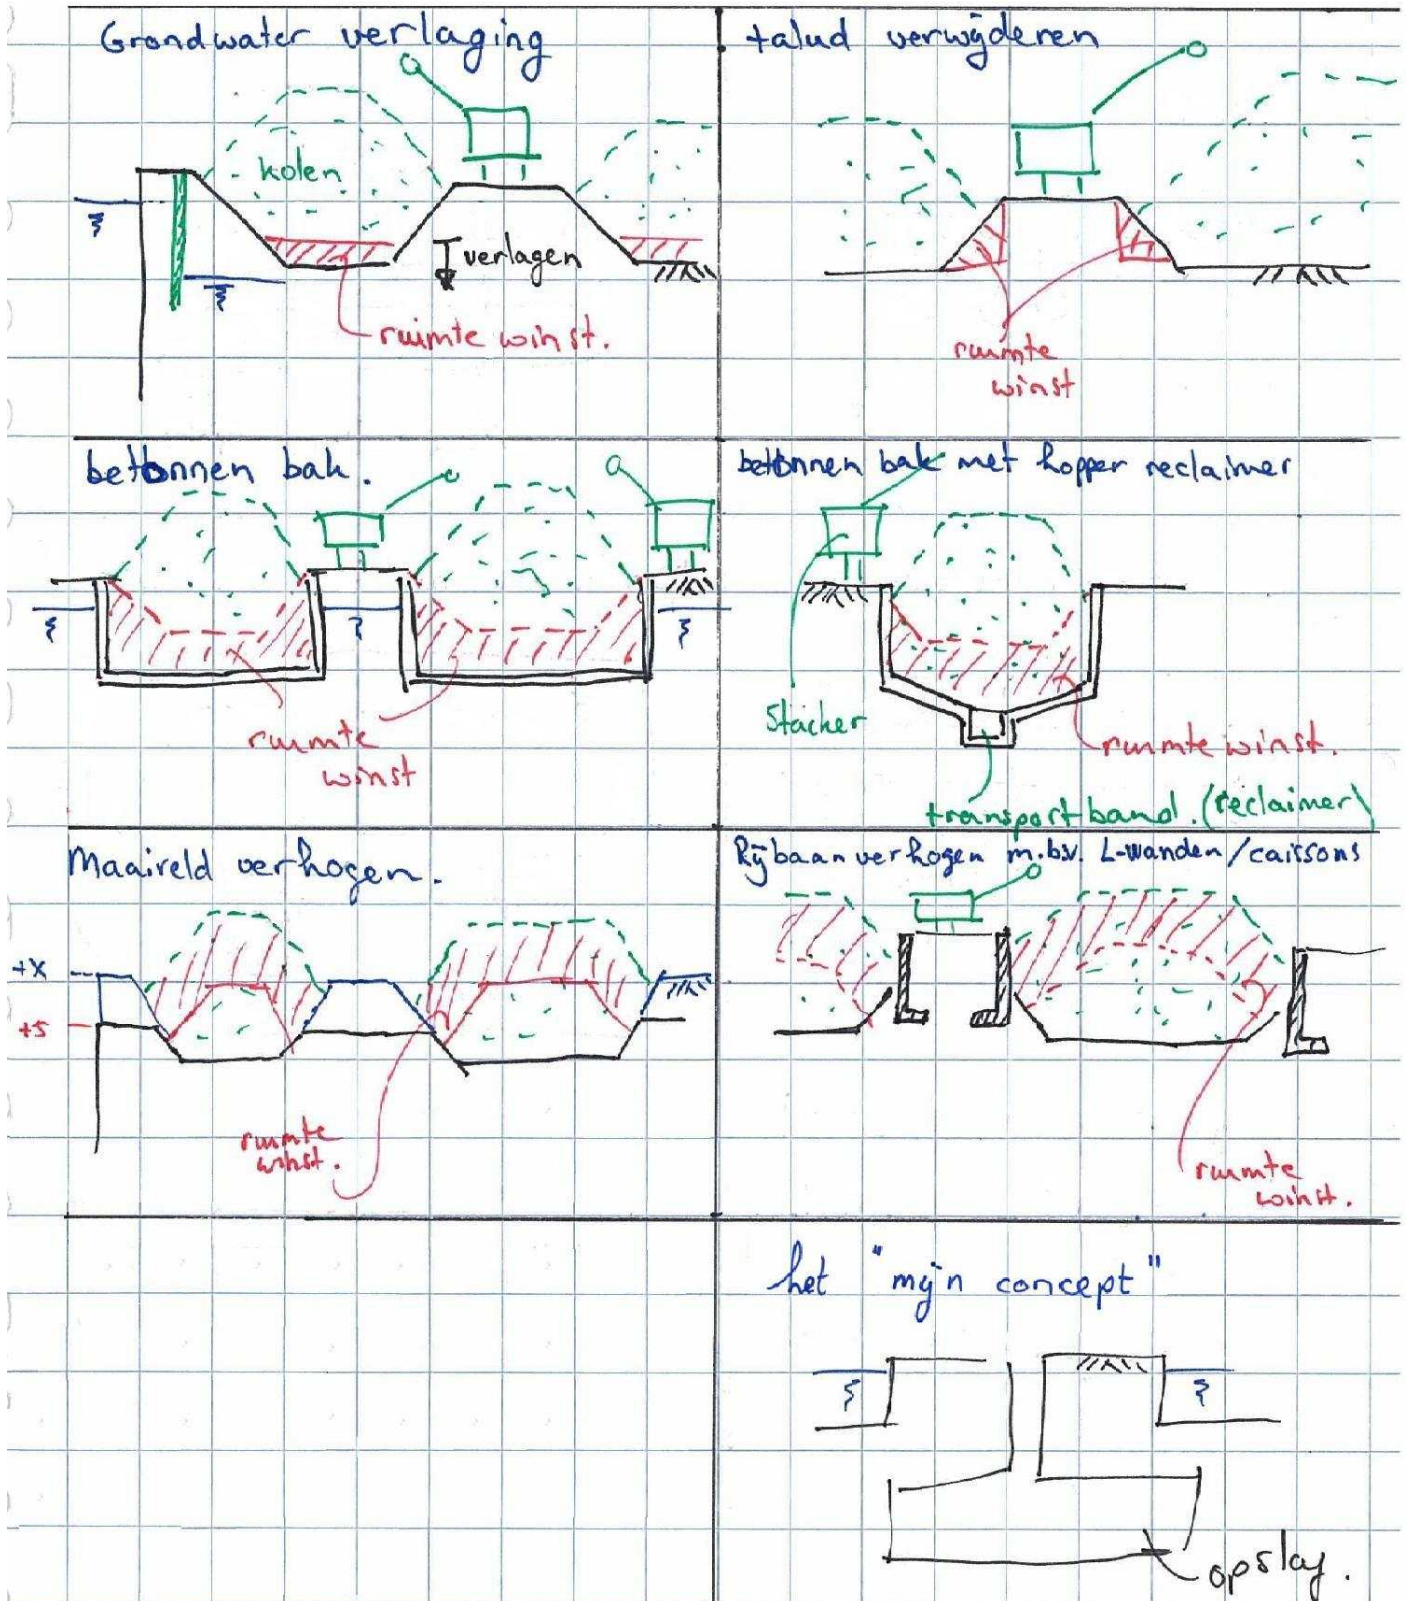 Grondwater verlaging
kolen
verlagen
ruimte winst.
talud verwijderen
ruimte
winst
betonnen bak.
ruimte
winst
betonnen bak met hopper reclaimer
Stacker
ruimte winst.
transportband. (reclaimer)
Maaiveld verhogen.
+X
+5
ruimte
winst.
Rijbaan verhogen m.b.v. L-wanden/caissons
ruimte
winst.
het "mijn concept"
opslag.